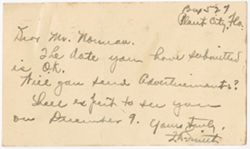 Box 527
Plant City, Fla.
Dear Mr. Norman.
The date you have submitted
is O.K.
Will you send Advertisements?
Shall expect to see you
on December 9.
Yours truly,